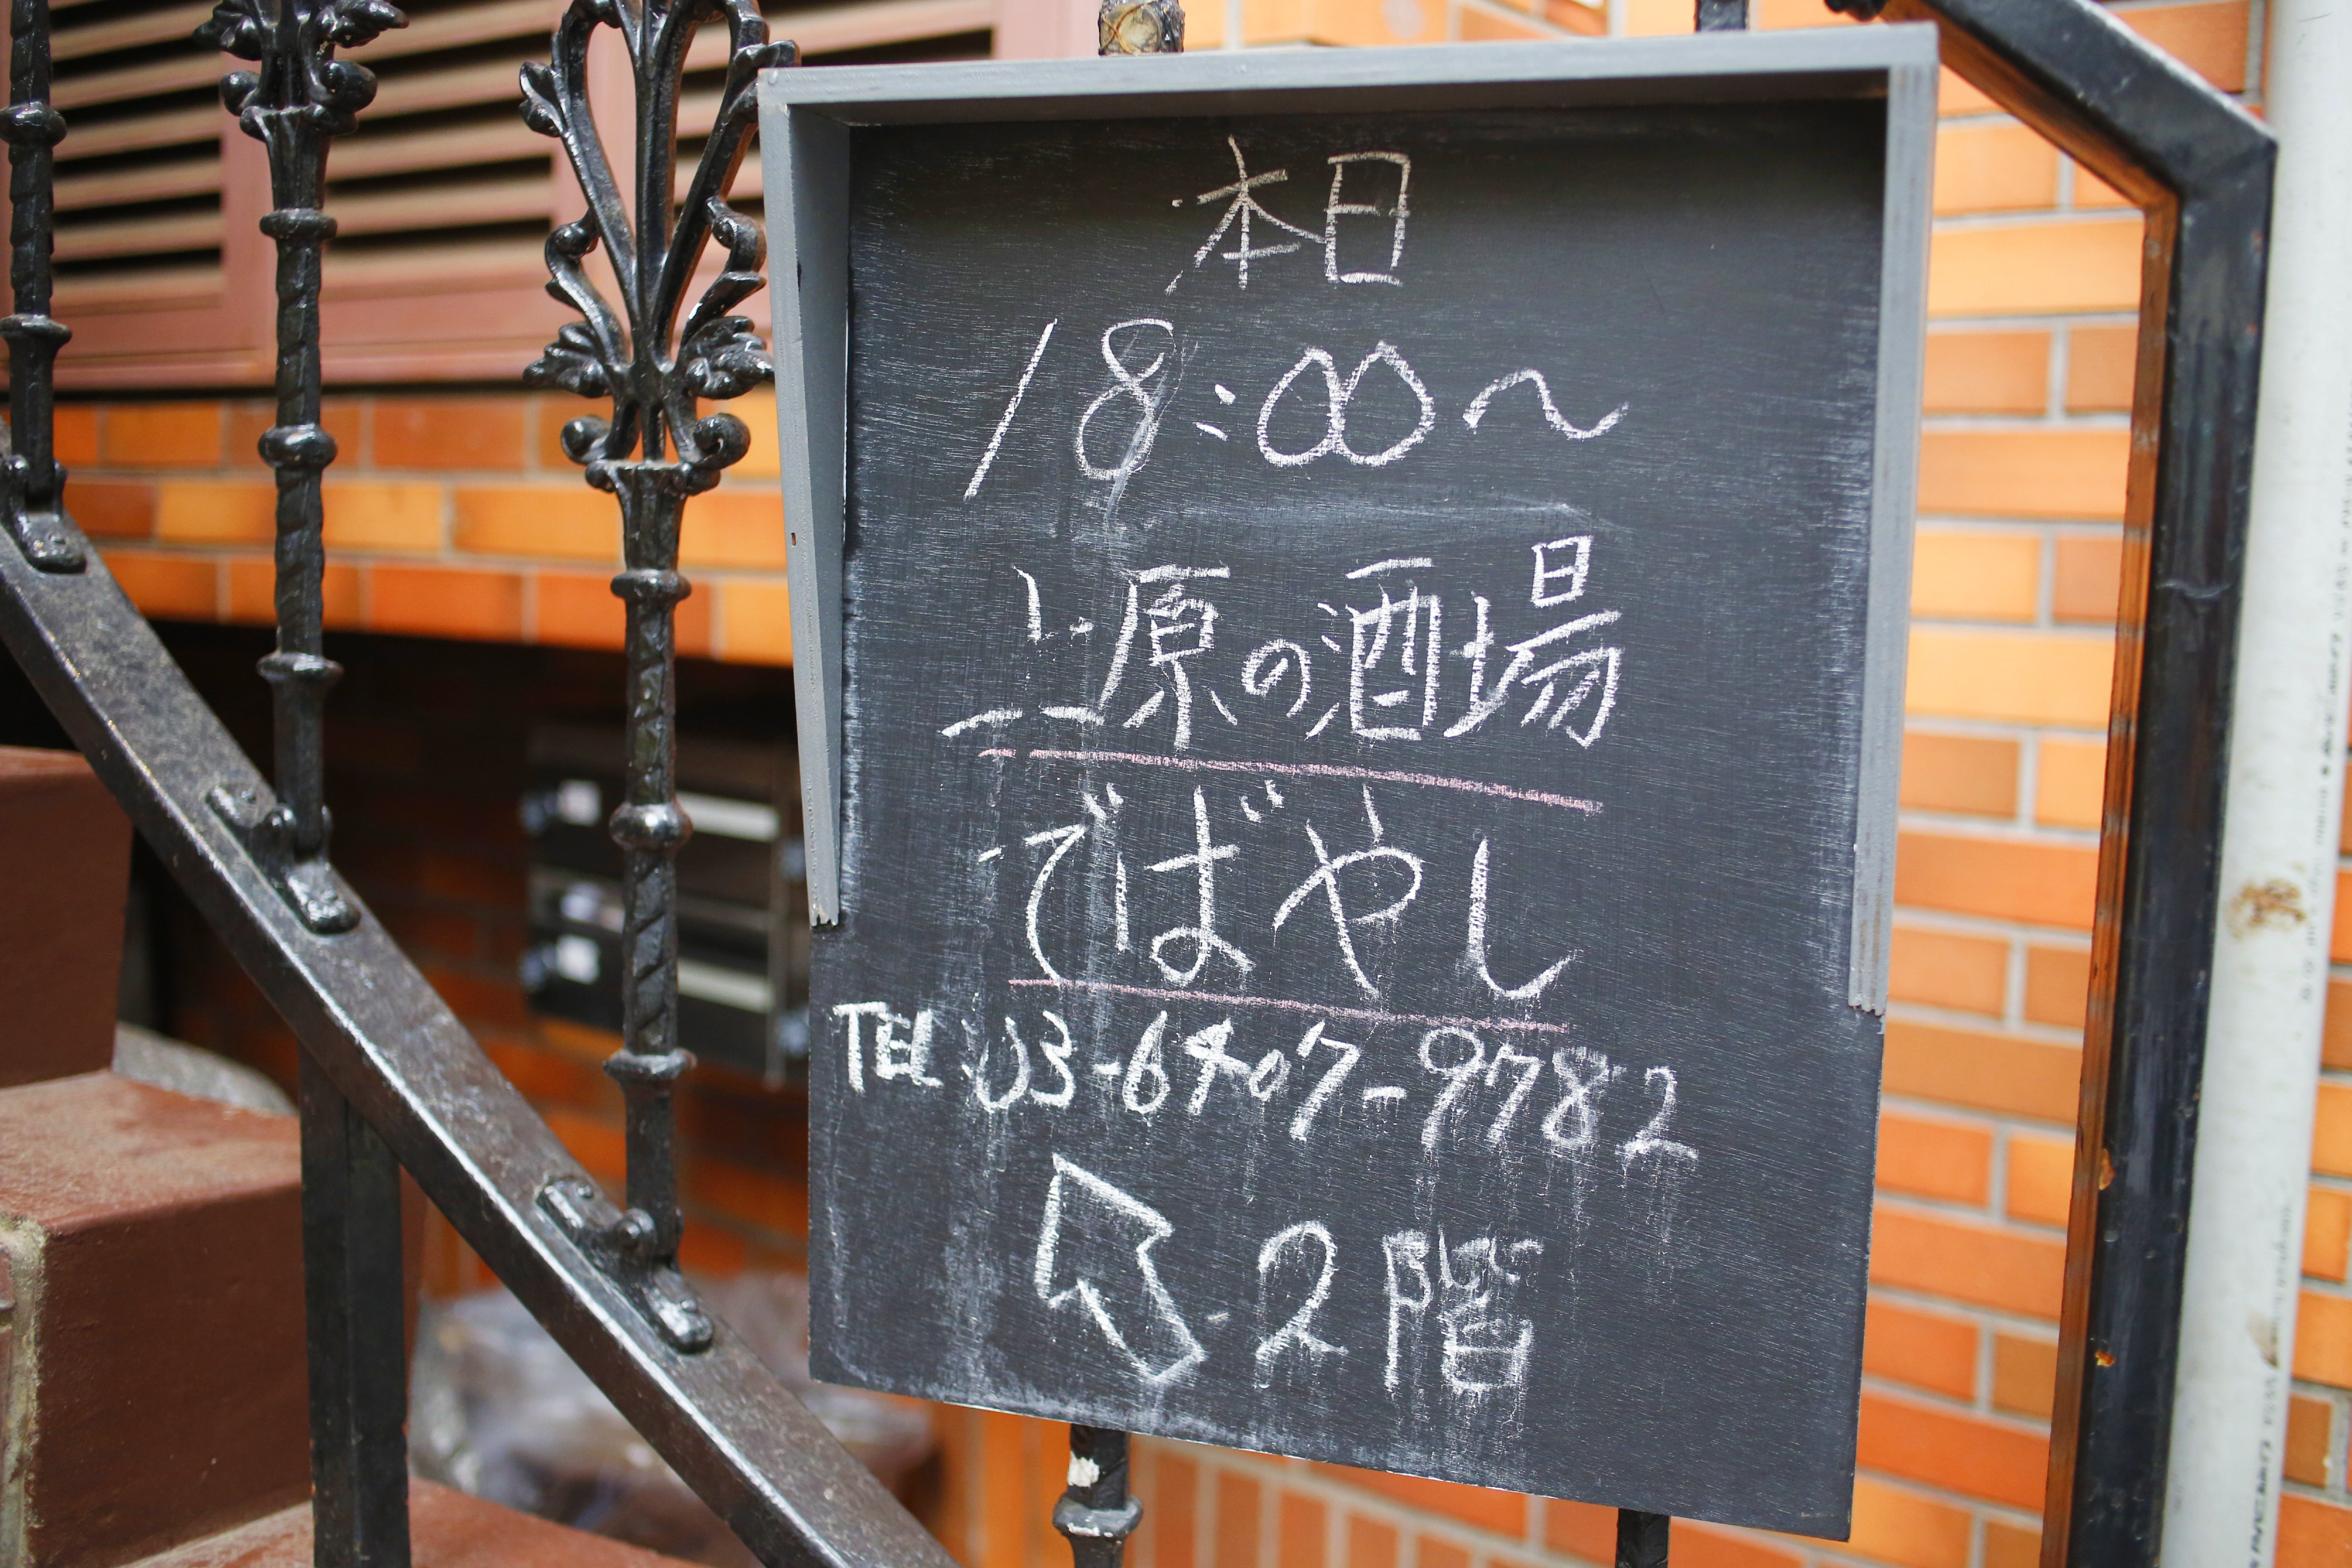 本日
18:00〜
上原の酒場
でばやし
TEL:03-6407-9782
2階